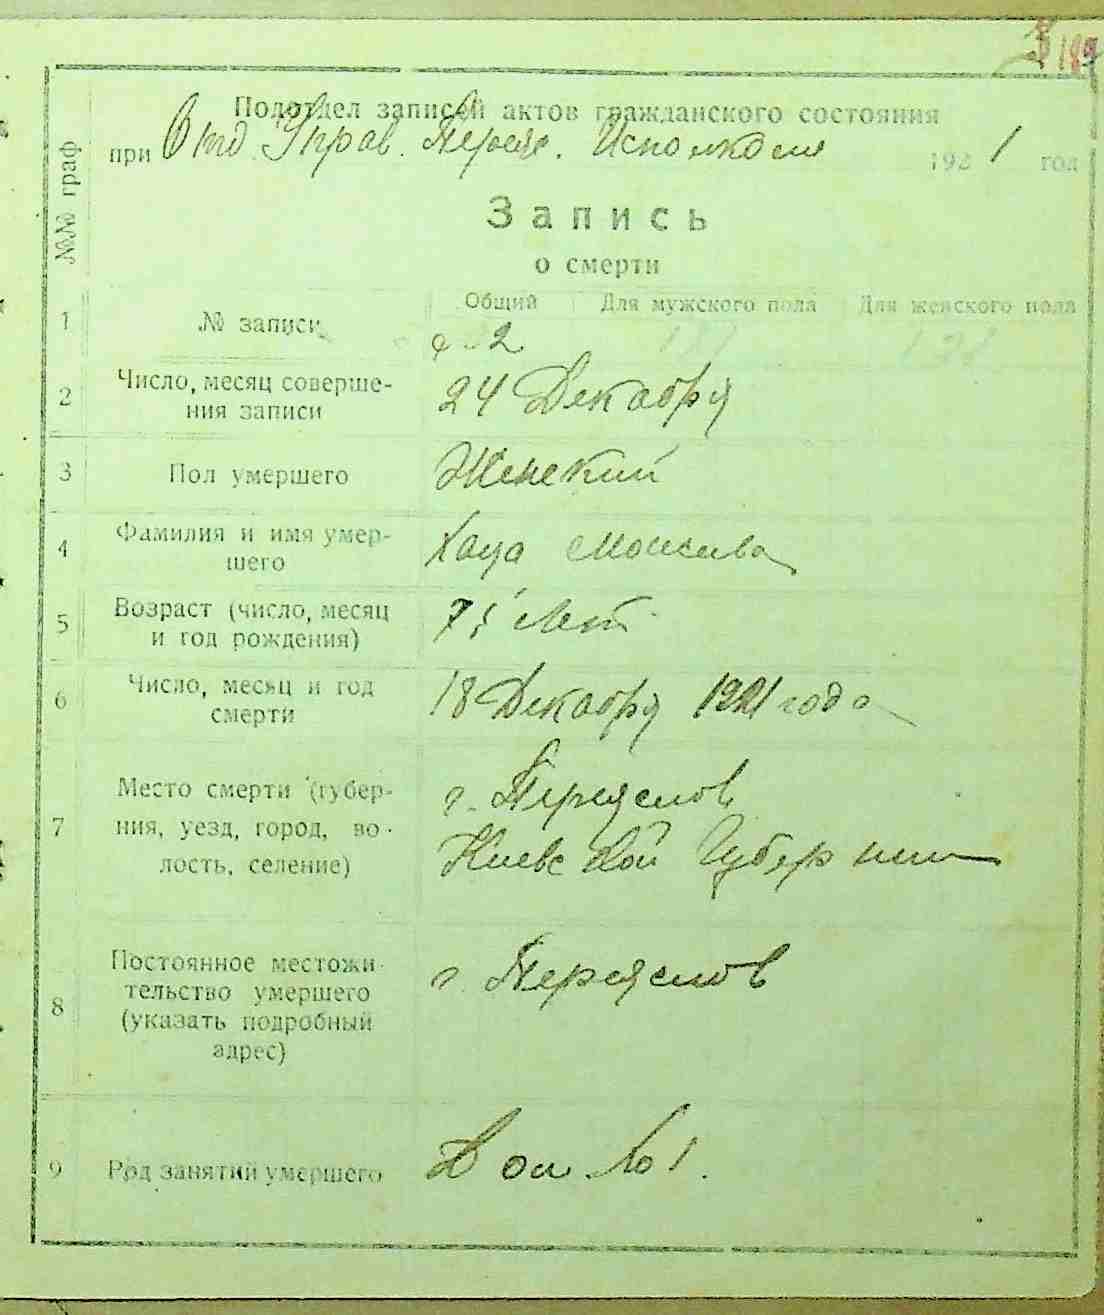 Подотдел записей актов гражданского состояния
при Отд. Управ. Переяс. Исполкоме 1921 год
№№ граф
Запись
о смерти
Общий Для мужского пола Для женского пола
1 № записи 2
2 Число, месяц соверше-
ния записи
24 Декабря
3 Пол умершего Женский
4 Фамилия и имя умер-
шего
Хая
5 Возраст (число, месяц
и год рождения)
75 Лет
6 Число, месяц и год
смерти
18 Декабря 1921 года
7 Место смерти (губер-
ния, уезд, город, во-
лость, селение)
г. Переяслов
Киевской Губернии
8 Постоянное местожи-
тельство умершего
(указать подробный
адрес)
г. Переяслов
9 Род занятий умершего Дом №1.